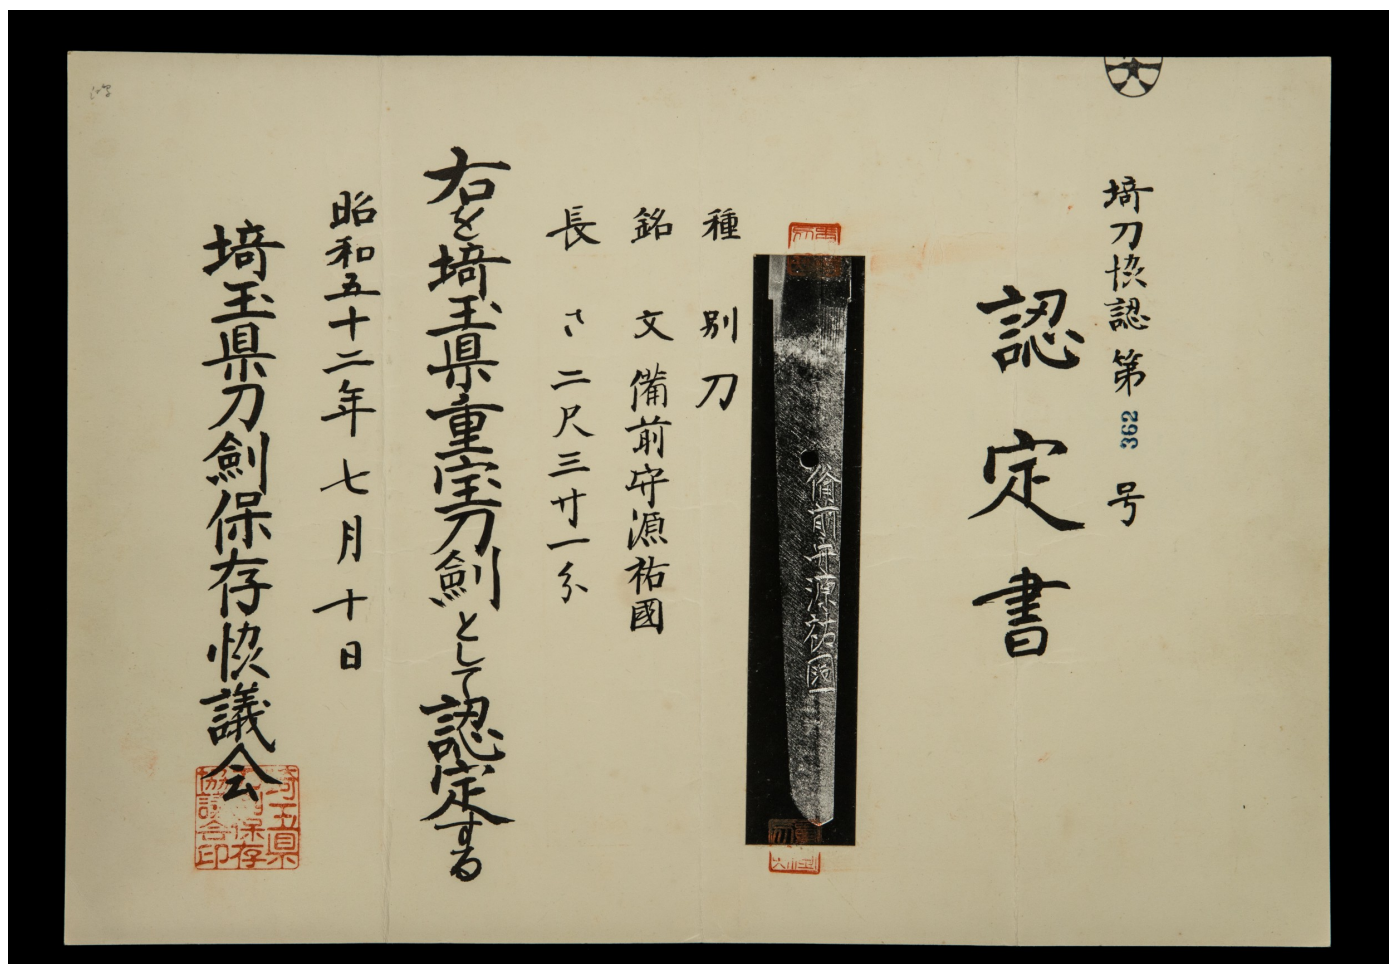 埼刀協認第362号
認定書
備前守源祐国
種別 刀
銘文 備前守源祐國
長さ 二尺三寸一分
右を埼玉県重宝刀劍として認定する
昭和五十二年七月十日
埼玉県刀劍保存協議会
埼玉県
刀剣保存
協議会印